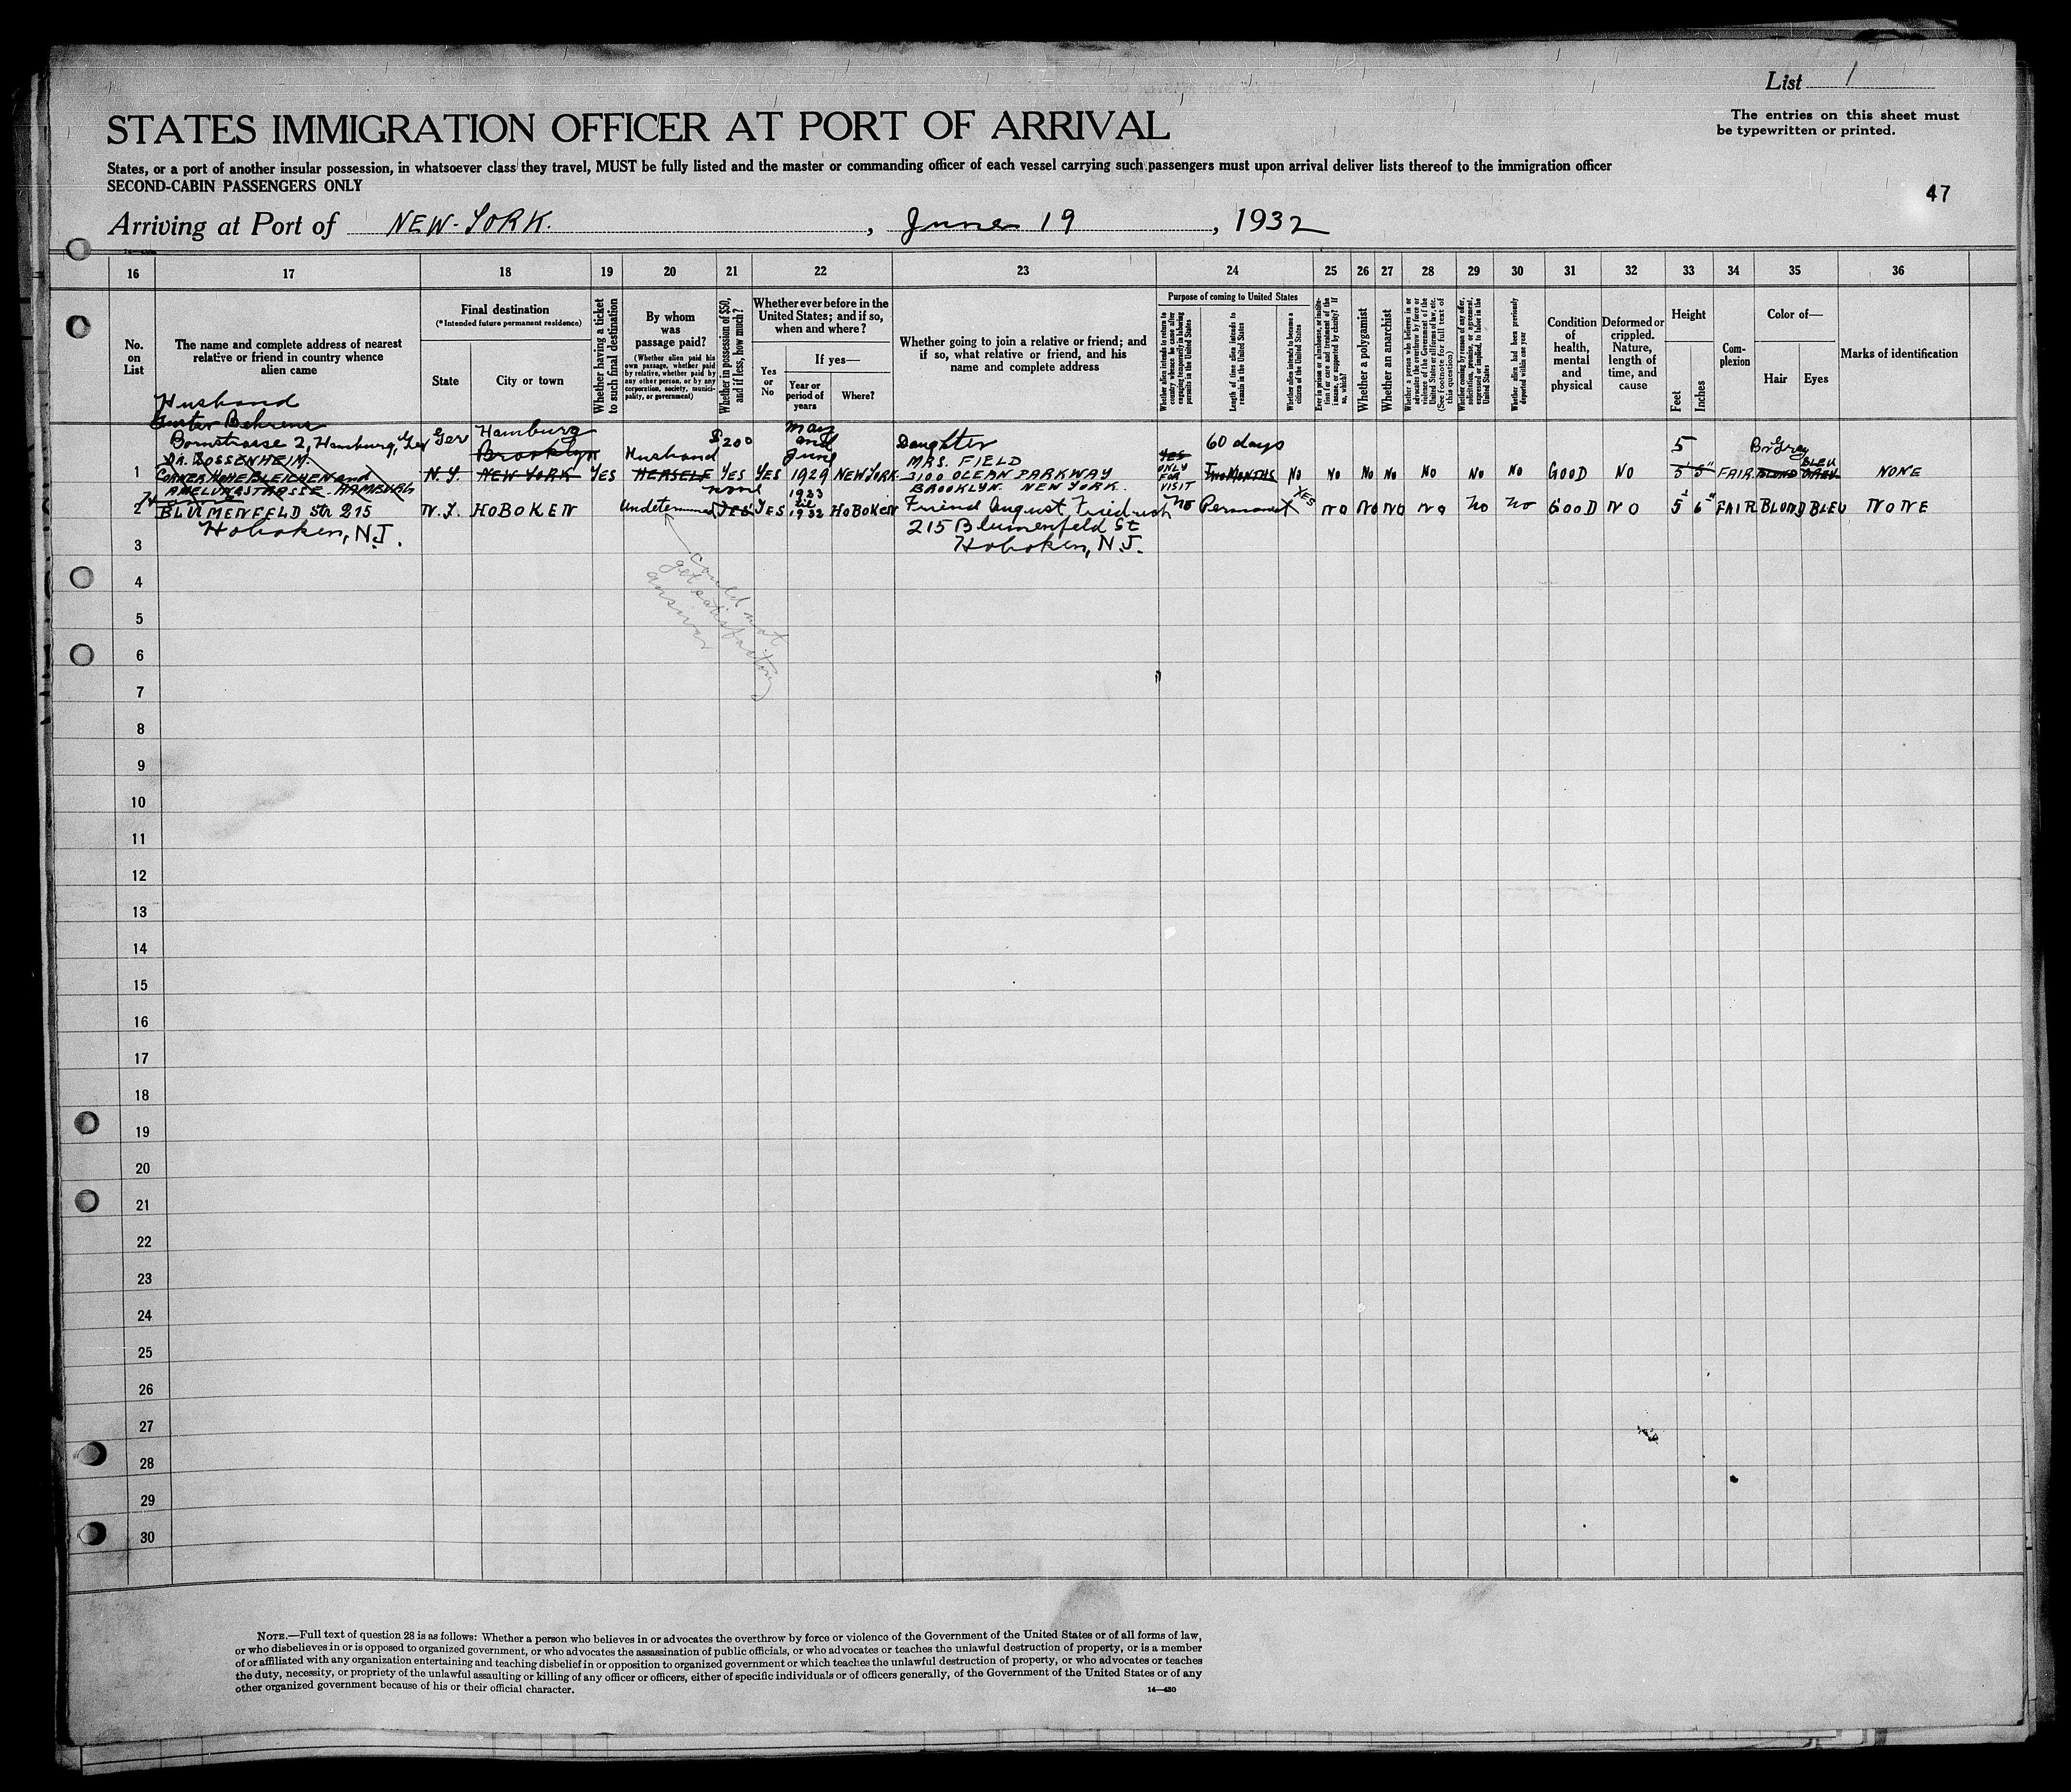 List 1
The entries on this sheet must
be typewritten or printed.
STATES IMMIGRATION OFFICER AT PORT OF ARRIVAL
States, or a port of another insular possession, in whatsoever class they travel, MUST be fully listed and the master or commanding officer of each vessel carrying such passengers must upon arrival deliver lists thereof to the immigration officer
SECOND-CABIN PASSENGERS ONLY
47
Arriving at Port of NEW-YORK. , June 19 , 1932
16 17 18 19 20 21 22 23 24 25 26 27 28 29 30 31 32 33 34 35 36
No.
on
List
The name and complete address of nearest
relative or friend in country whence
alien came
Final destination
(*Intended future permanent residence)
State
City or town
Whether having a ticket
to such final destination
By whom
was
passage paid?
(Whether alien paid his
own passage, whether paid
by relative, whether paid by
any other person, or by any
corporation, society, munici-
pality, or government)
Whether in possession of $50,
and if less, how much?
Whether ever before in the
United States; and if so,
when and where?
Yes
or
No
If yes—
Year or
period of
years
Where?
Whether going to join a relative or friend; and
if so, what relative or friend, and his
name and complete address
Purpose of coming to United States
Whether alien intends to return to
country whence he came after
engaging temporarily in laboring
pursuits in the United States
Length of time alien intends to
remain in the United States
Whether alien intends to become a
citizen of the United States
Ever in prison or almshouse, or institu-
tion for care and treatment of the
insane, or supported by charity? If
so, which?
Whether a polygamist
Whether an anarchist
Whether a person who believes in or
advocates the overthrow by force or
violence of the Government of the
United States or all forms of law, etc.
(See footnote for full text of
this question)
Whether coming by reason of any offer,
solicitation, promise, or agreement,
expressed or implied, to labor in the
United States
Whether alien had been previously
deported within one year
Condition
of
health,
mental
and
physical
Deformed or
crippled.
Nature,
length of
time, and
cause
Height
Feet
Inches
Com-
plexion
Color of—
Hair
Eyes
Marks of identification
Husband
Gustav Behrens
Bornstrasse 2, Hamburg, Ger
DR. BOSSENHEIM.
CORNER HOHE BLEICHEN and
AMELUNGSTRASSE. HAMBURG
Ger Hamburg
Brooklyn
1 N.Y. NEW YORK YES
Husband
HERSELF
$200
YES YES
May
and
June
1929 NEW YORK.
Daughter
MRS. FIELD
3100 OCEAN PARKWAY
BROOKLYN. NEW YORK.
YES
ONLY
FOR
VISIT
60 days
TWO MONTHS No NO NO NO NO NO NO GOOD NO
5
5 5" FAIR
Br. Gray
BLOND
BLEU
NONE
2 BLUMENFELD Str 215
Hoboken, N.J.
N.Y. HOBOKEN
Undetermined
none
YES YES
1923
til
1932 HOBOKEN
Friend August Friedrich
215 Blumenfeld St
Hoboken, N.J.
No Permanent YES NO NO NO NO No No GOOD NO 5 6" FAIR BLOND BLEU NONE
could not
get satisfactory
answer
3
4
5
6
7
8
9
10
11
12
13
14
15
16
17
18
19
20
21
22
23
24
25
26
27
28
29
30
NOTE.—Full text of question 28 is as follows: Whether a person who believes in or advocates the overthrow by force or violence of the Government of the United States or of all forms of law,
or who disbelieves in or is opposed to organized government, or who advocates the assassination of public officials, or who advocates or teaches the unlawful destruction of property, or is a member
of or affiliated with any organization entertaining and teaching disbelief in or opposition to organized government or which teaches the unlawful destruction of property, or who advocates or teaches
the duty, necessity, or propriety of the unlawful assaulting or killing of any officer or officers, either of specific individuals or of officers generally, of the Government of the United States or of any
other organized government because of his or their official character.
14—430